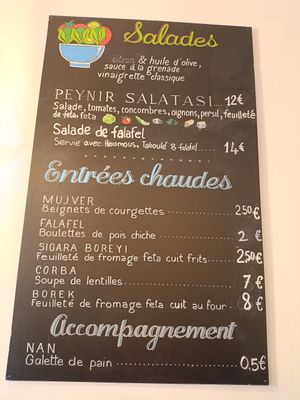 Salades
citron & huile d'olive,
sauce à la grenade
vinaigrette classique
PEYNIR SALATASI.... 12€
Salade, tomates, concombres, oignons, persil, feuilleté
de feta, feta
Salade de falafel
Servie avec Houmous, Taboulé & falafel ... 14€
Entrées chaudes
MUJVER
Beignets de courgettes ............ 2.50€
FALAFEL
Boulettes de pois chiche ............ 2 €
SIGARA BOREYI
Feuilleté de fromage feta cuit frits .... 2,50€
CORBA
Soupe de lentilles ............ 7 €
BOREK
Feuilleté de fromage feta cuit au four ... 8 €
Accompagnement
NAN
Galette de pain ............ 0.5€